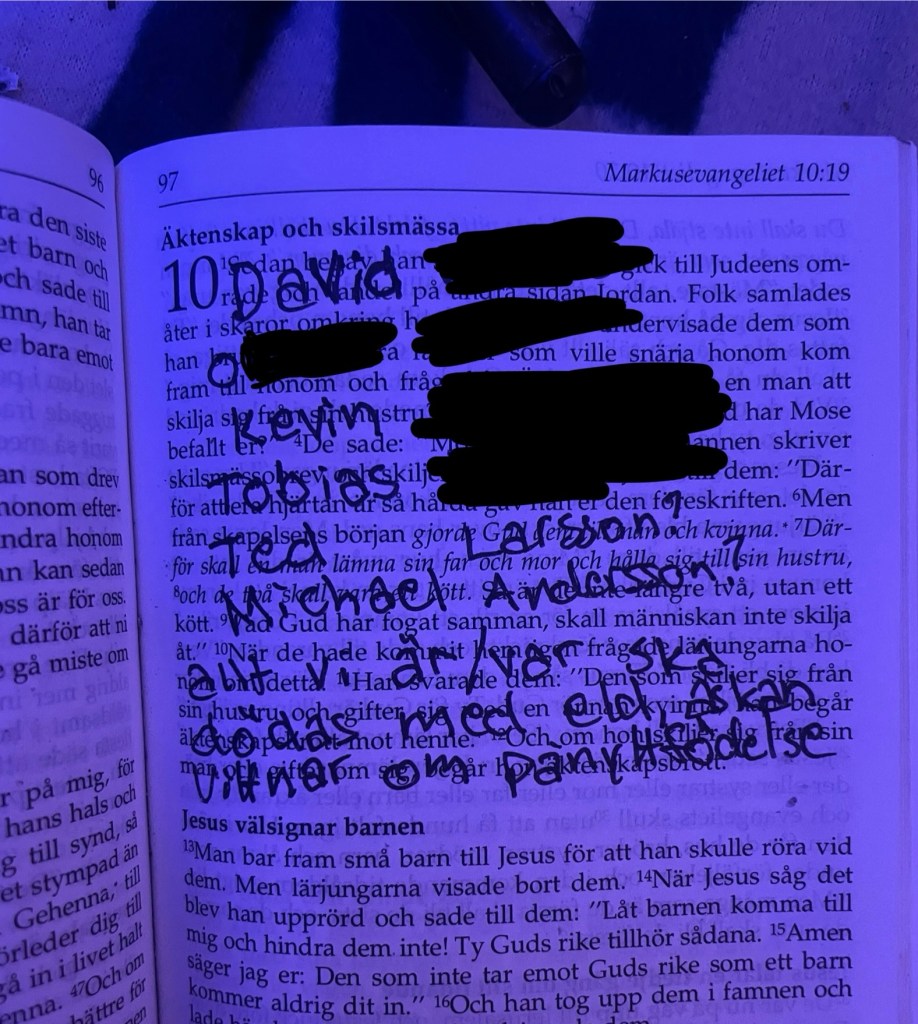 96
ra den siste
et barn och
och sade till
mn, han tar
e bara emot
an som drev
honom efter-
ndra honom
an kan sedan
oss är för oss.
därför att ni
gå miste om
r på mig, för
hans hals och
g till synd, så
et stympad än
Gehenna, till
örleder dig till
gå in i livet halt
enna. 47Och om
bättre för
97 Markusevangeliet 10:19
Äktenskap och skilsmässa
10 David till Judeens om-
på sidan Jordan. Folk samlades
åter i skaror omkring undervisade dem som
han som ville snärja honom kom
fram till honom och en man att
skilja sig från sin hustru har Mose
Kevin
befallt er?" 4De sade: mannen skriver
skilsmässobrev och dem: "Där-
Tobias
för att era hjärtan är så den föreskriften. 6Men
från skapelsens början gjorde Gud dem till man och kvinna. 7Där-
Ted Larsson?
för skall en man lämna sin far och mor och hålla sig till sin hustru,
8och de två skall vara ett kött. Så är de inte längre två, utan ett
Michael Andersson?
kött. 9Vad Gud har fogat samman, skall människan inte skilja
åt." 10När de hade kommit hem igen frågade lärjungarna ho-
allt vi är/var ska
nom om detta. 11Han svarade dem: "Den som skiljer sig från
sin hustru och gifter sig med en annan kvinna, han begår
dödas med eld, åskan
äktenskapsbrott mot henne. 12Och om hon skiljer sig från sin
man och gifter om sig, begår hon äktenskapsbrott."
vittnar om pånyttfödelse
Jesus välsignar barnen
13Man bar fram små barn till Jesus för att han skulle röra vid
dem. Men lärjungarna visade bort dem. 14När Jesus såg det
blev han upprörd och sade till dem: "Låt barnen komma till
mig och hindra dem inte! Ty Guds rike tillhör sådana. 15Amen
säger jag er: Den som inte tar emot Guds rike som ett barn
kommer aldrig dit in." 16Och han tog upp dem i famnen och